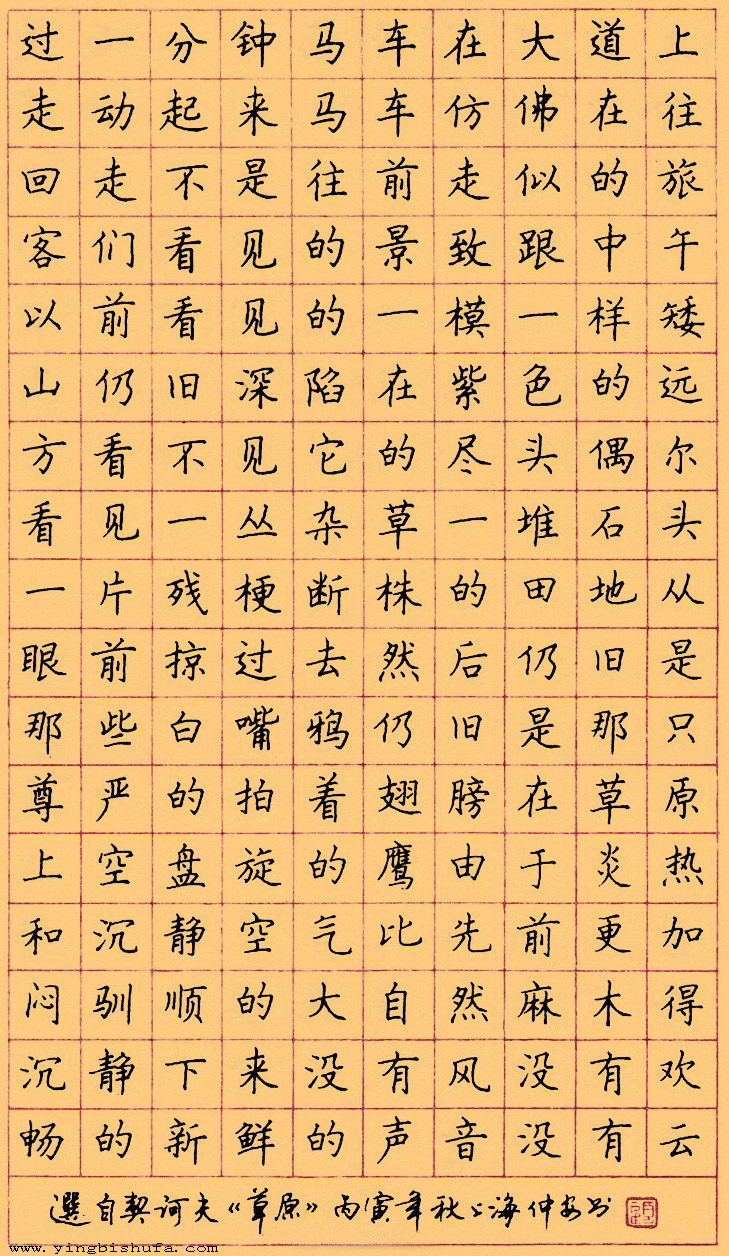 过一分钟马车在大道上
走动起来马车仿佛在往
回走不是往前走似的旅
客们看见的景致跟中午
以前看见的一模一样矮
山仍旧深陷在紫色的远
方看不见它的尽头偶尔
看见一丛杂草一堆石头
一片残梗断株的田地从
眼前掠过去然后仍旧是
那些白嘴鸦仍旧是那只
尊严的拍着翅膀在草原
上空盘旋的鹰由于炎热
和沉静空气比先前更加
闷驯顺的大自然麻木得
沉静下来没有风没有欢
畅的新鲜的声音没有云
選自契诃夫《草原》丙寅年秋上海仲安书
www.yingbishufa.com